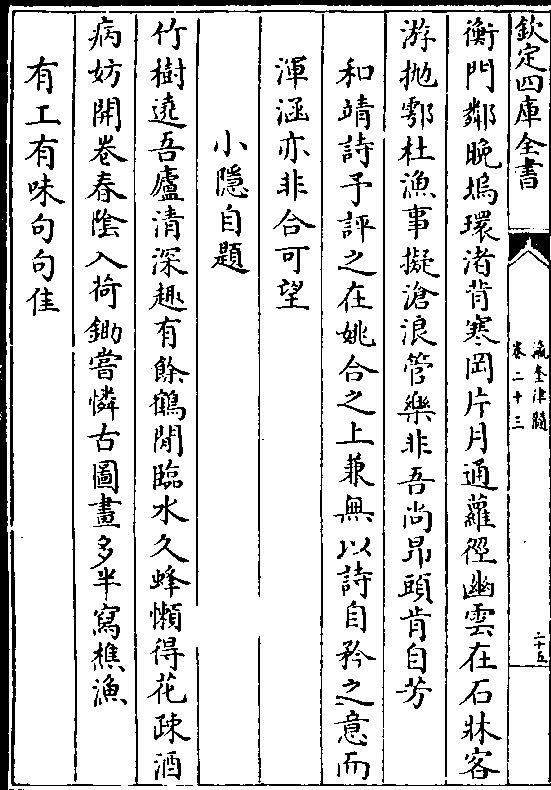 欽定四庫全書
瀛奎律髓
卷二十三
二十五
衡門鄰晚塢環渚背寒岡片月通蘿徑幽雲在石牀客
游抛鄠杜漁事擬滄浪管樂非吾尚昂頭肯自芳
和靖詩予評之在姚合之上兼無以詩自矜之意而
渾涵亦非合可望
小隱自題
竹樹遶吾廬清深趣有餘鶴閒臨水久蜂懶得花疎酒
病妨開卷春隂入荷鋤嘗憐古圖畫多半寫樵漁
有工有味句句佳